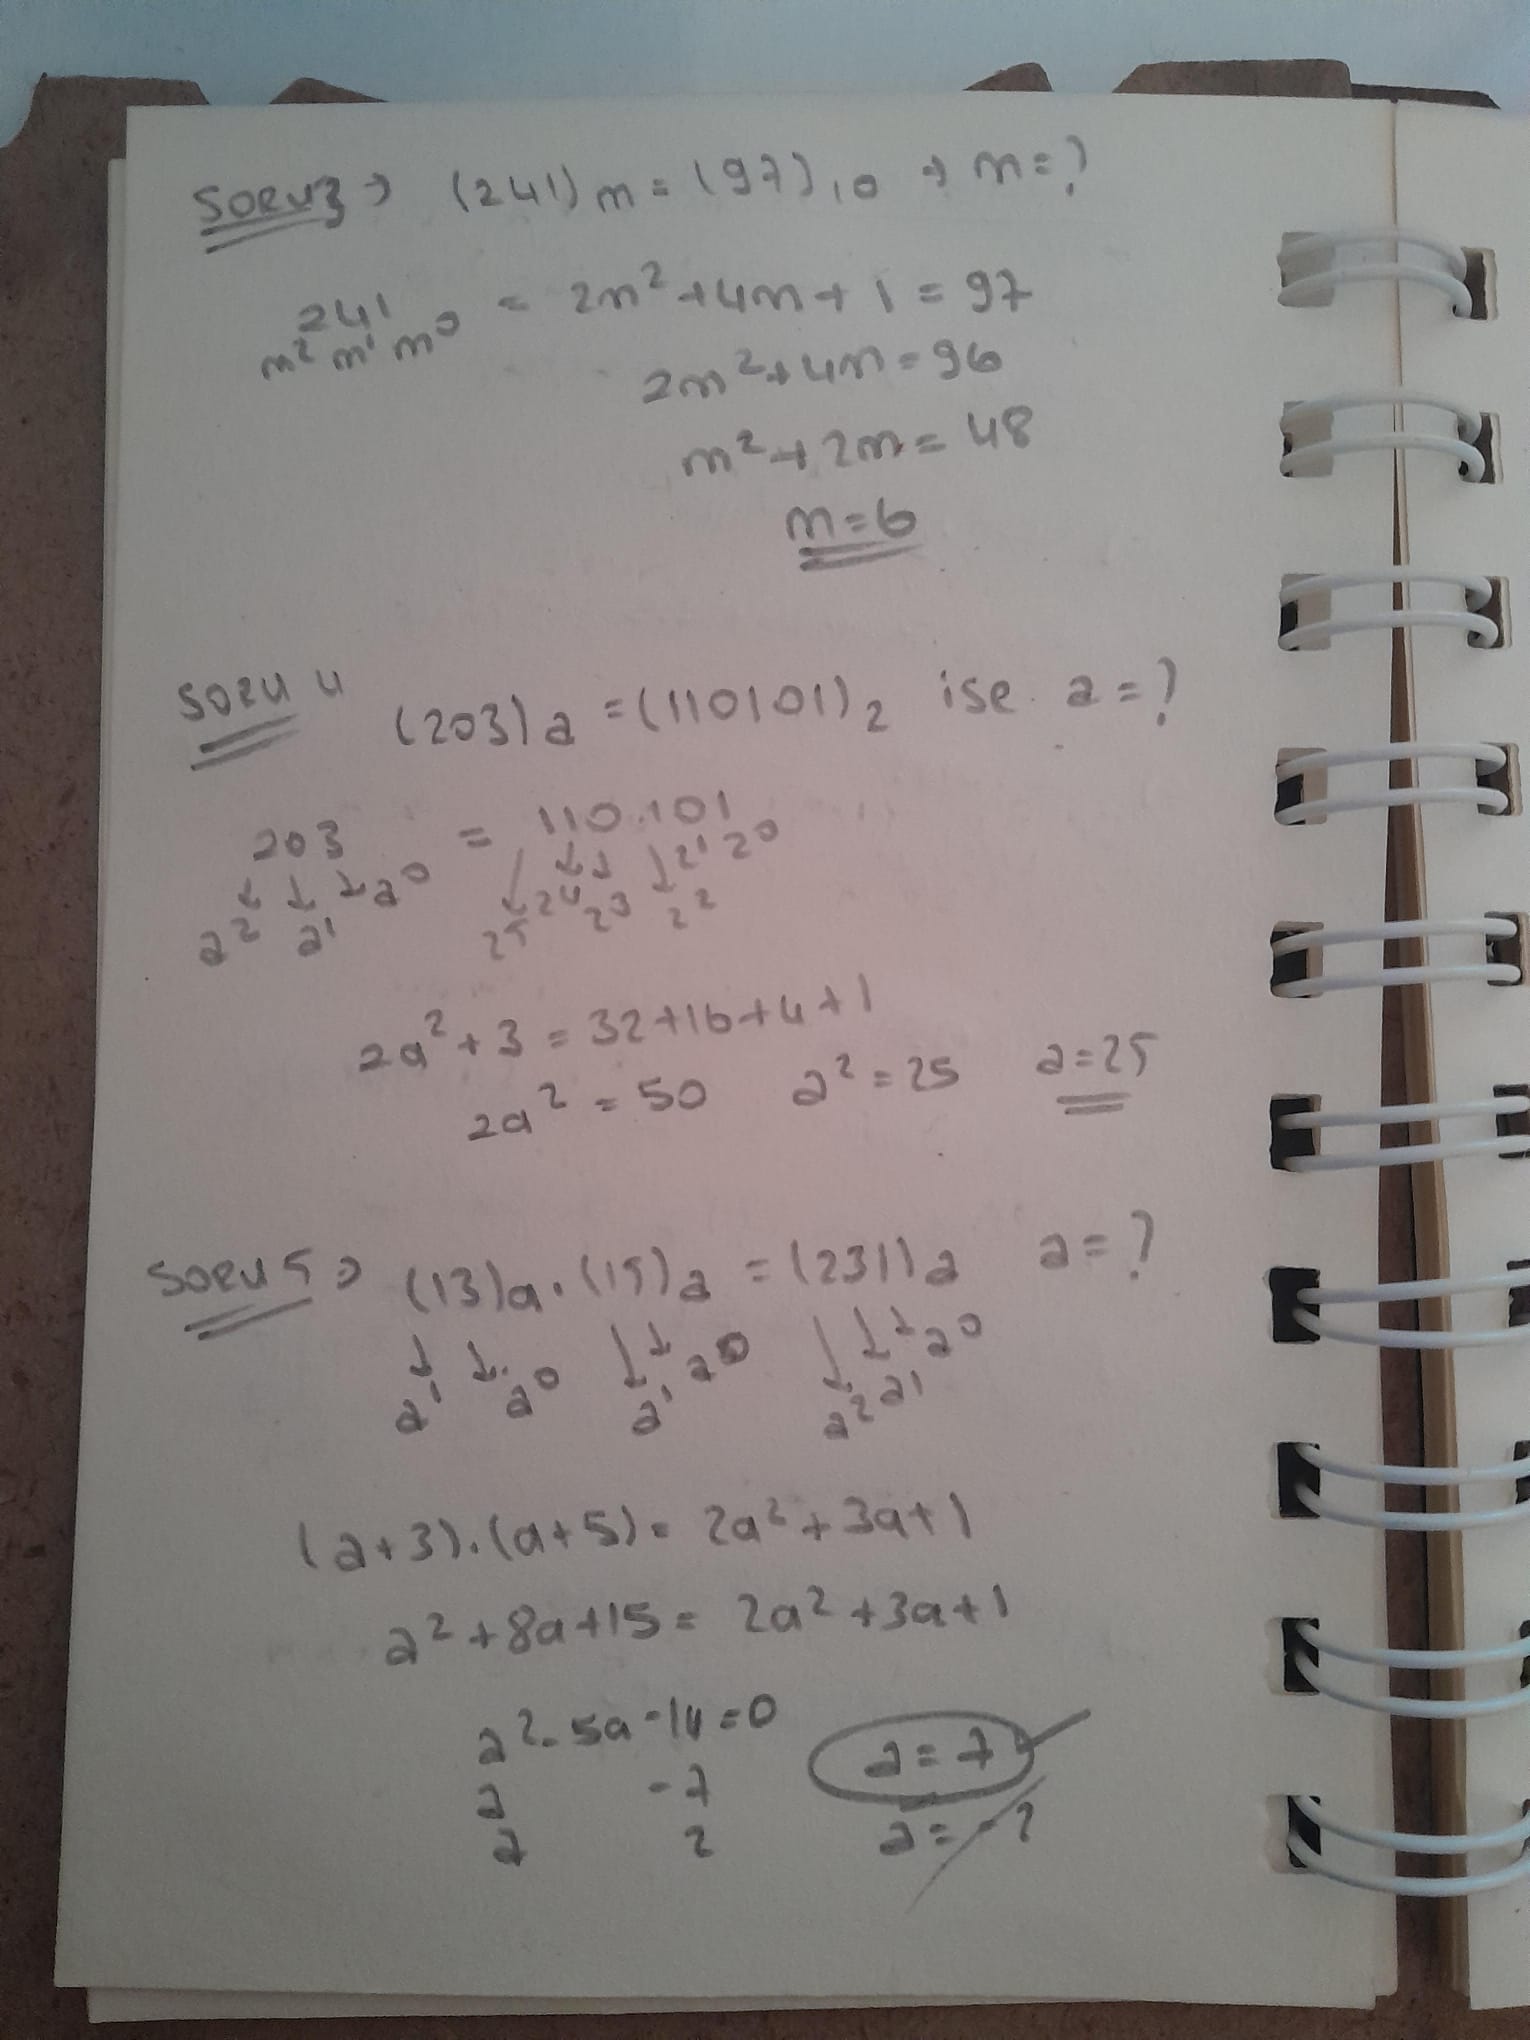 SORU 3 → (241)m = (97)10 → m = ?
241 = 2m² + 4m + 1 = 97
m² m¹ m⁰
2m² + 4m = 96
m² + 2m = 48
m = 6
SORU 4 (203)a = (110101)2 ise a = ?
203 = 110101
↓ ↓ ↓ a⁰ ↓ ↓ ↓ ↓ 2¹ 2⁰
a² a¹ 2⁵ 2⁴ 2³ 2²
2a² + 3 = 32 + 16 + 4 + 1
2a² = 50 a² = 25 a = 25
SORU 5 → (13)a . (15)a = (231)a a = ?
↓ ↓ ↓ ↓ a⁰ ↓ ↓ ↓ a⁰
a¹ a⁰ a¹ a² a¹
(a + 3) . (a + 5) = 2a² + 3a + 1
a² + 8a + 15 = 2a² + 3a + 1
a² - 5a - 14 = 0 a = 7
a -7
a 2 a = -2